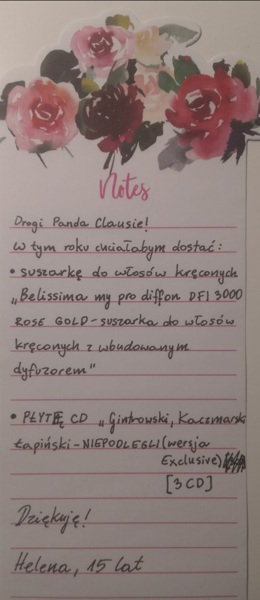 Notes
Drogi Panda Clausie!
W tym roku chciałabym dostać:
• suszarkę do włosów kręconych
„Belissima my pro diffon DFI 3000
ROSE GOLD - suszarka do włosów
kręconych z wbudowanym
dyfuzorem"
• PŁYTĘ CD „Gintrowski, Kaczmarski
Łapiński - NIEPODLEGLI (wersja
Exclusive)
[3 CD]
Dziękuję!
Helena, 15 lat